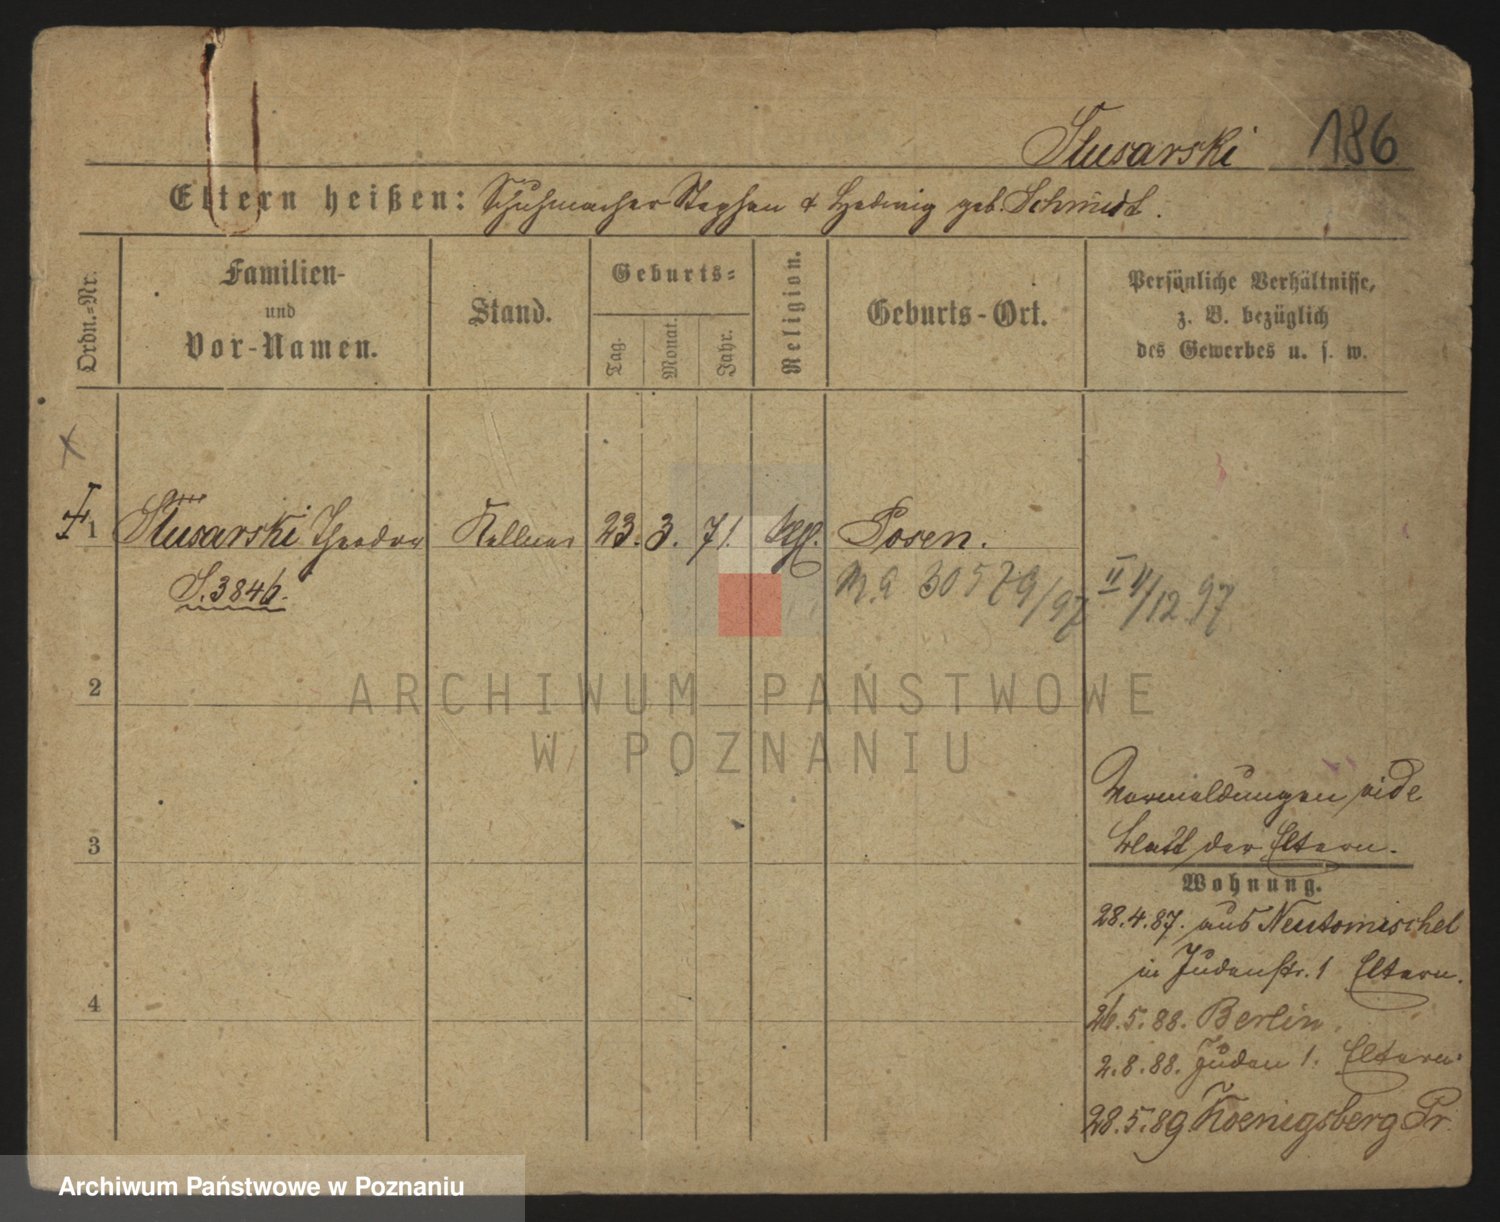 Slusarski 186
Eltern heißen: Schuhmacher Stephan & Hedwig geb. Schmidt.
Ordn.-Nr.
Familien-
und
Vor-Namen.
Stand.
Geburts=
Tag.
Monat.
Jahr.
Religion.
Geburts-Ort.
Persönliche Verhältnisse,
z. B. bezüglich
des Gewerbes u. s. w.
1 Slusarski Theodor Kellner 23. 3. 71. ktl. Posen.
S. 3846.
M.a 30579/97 II 11/12 97
2
ARCHIWUM PAŃSTWOWE
W POZNANIU
Vormeldungen vide
blatt der Eltern.
3
Wohnung.
28.4.87. aus Neutomischel
in Judenstr. 1 Eltern.
4
26.5.88. Berlin.
2.8.88. Juden 1. Eltern.
28.5.89 Koenigsberg Pr.
Archiwum Państwowe w Poznaniu